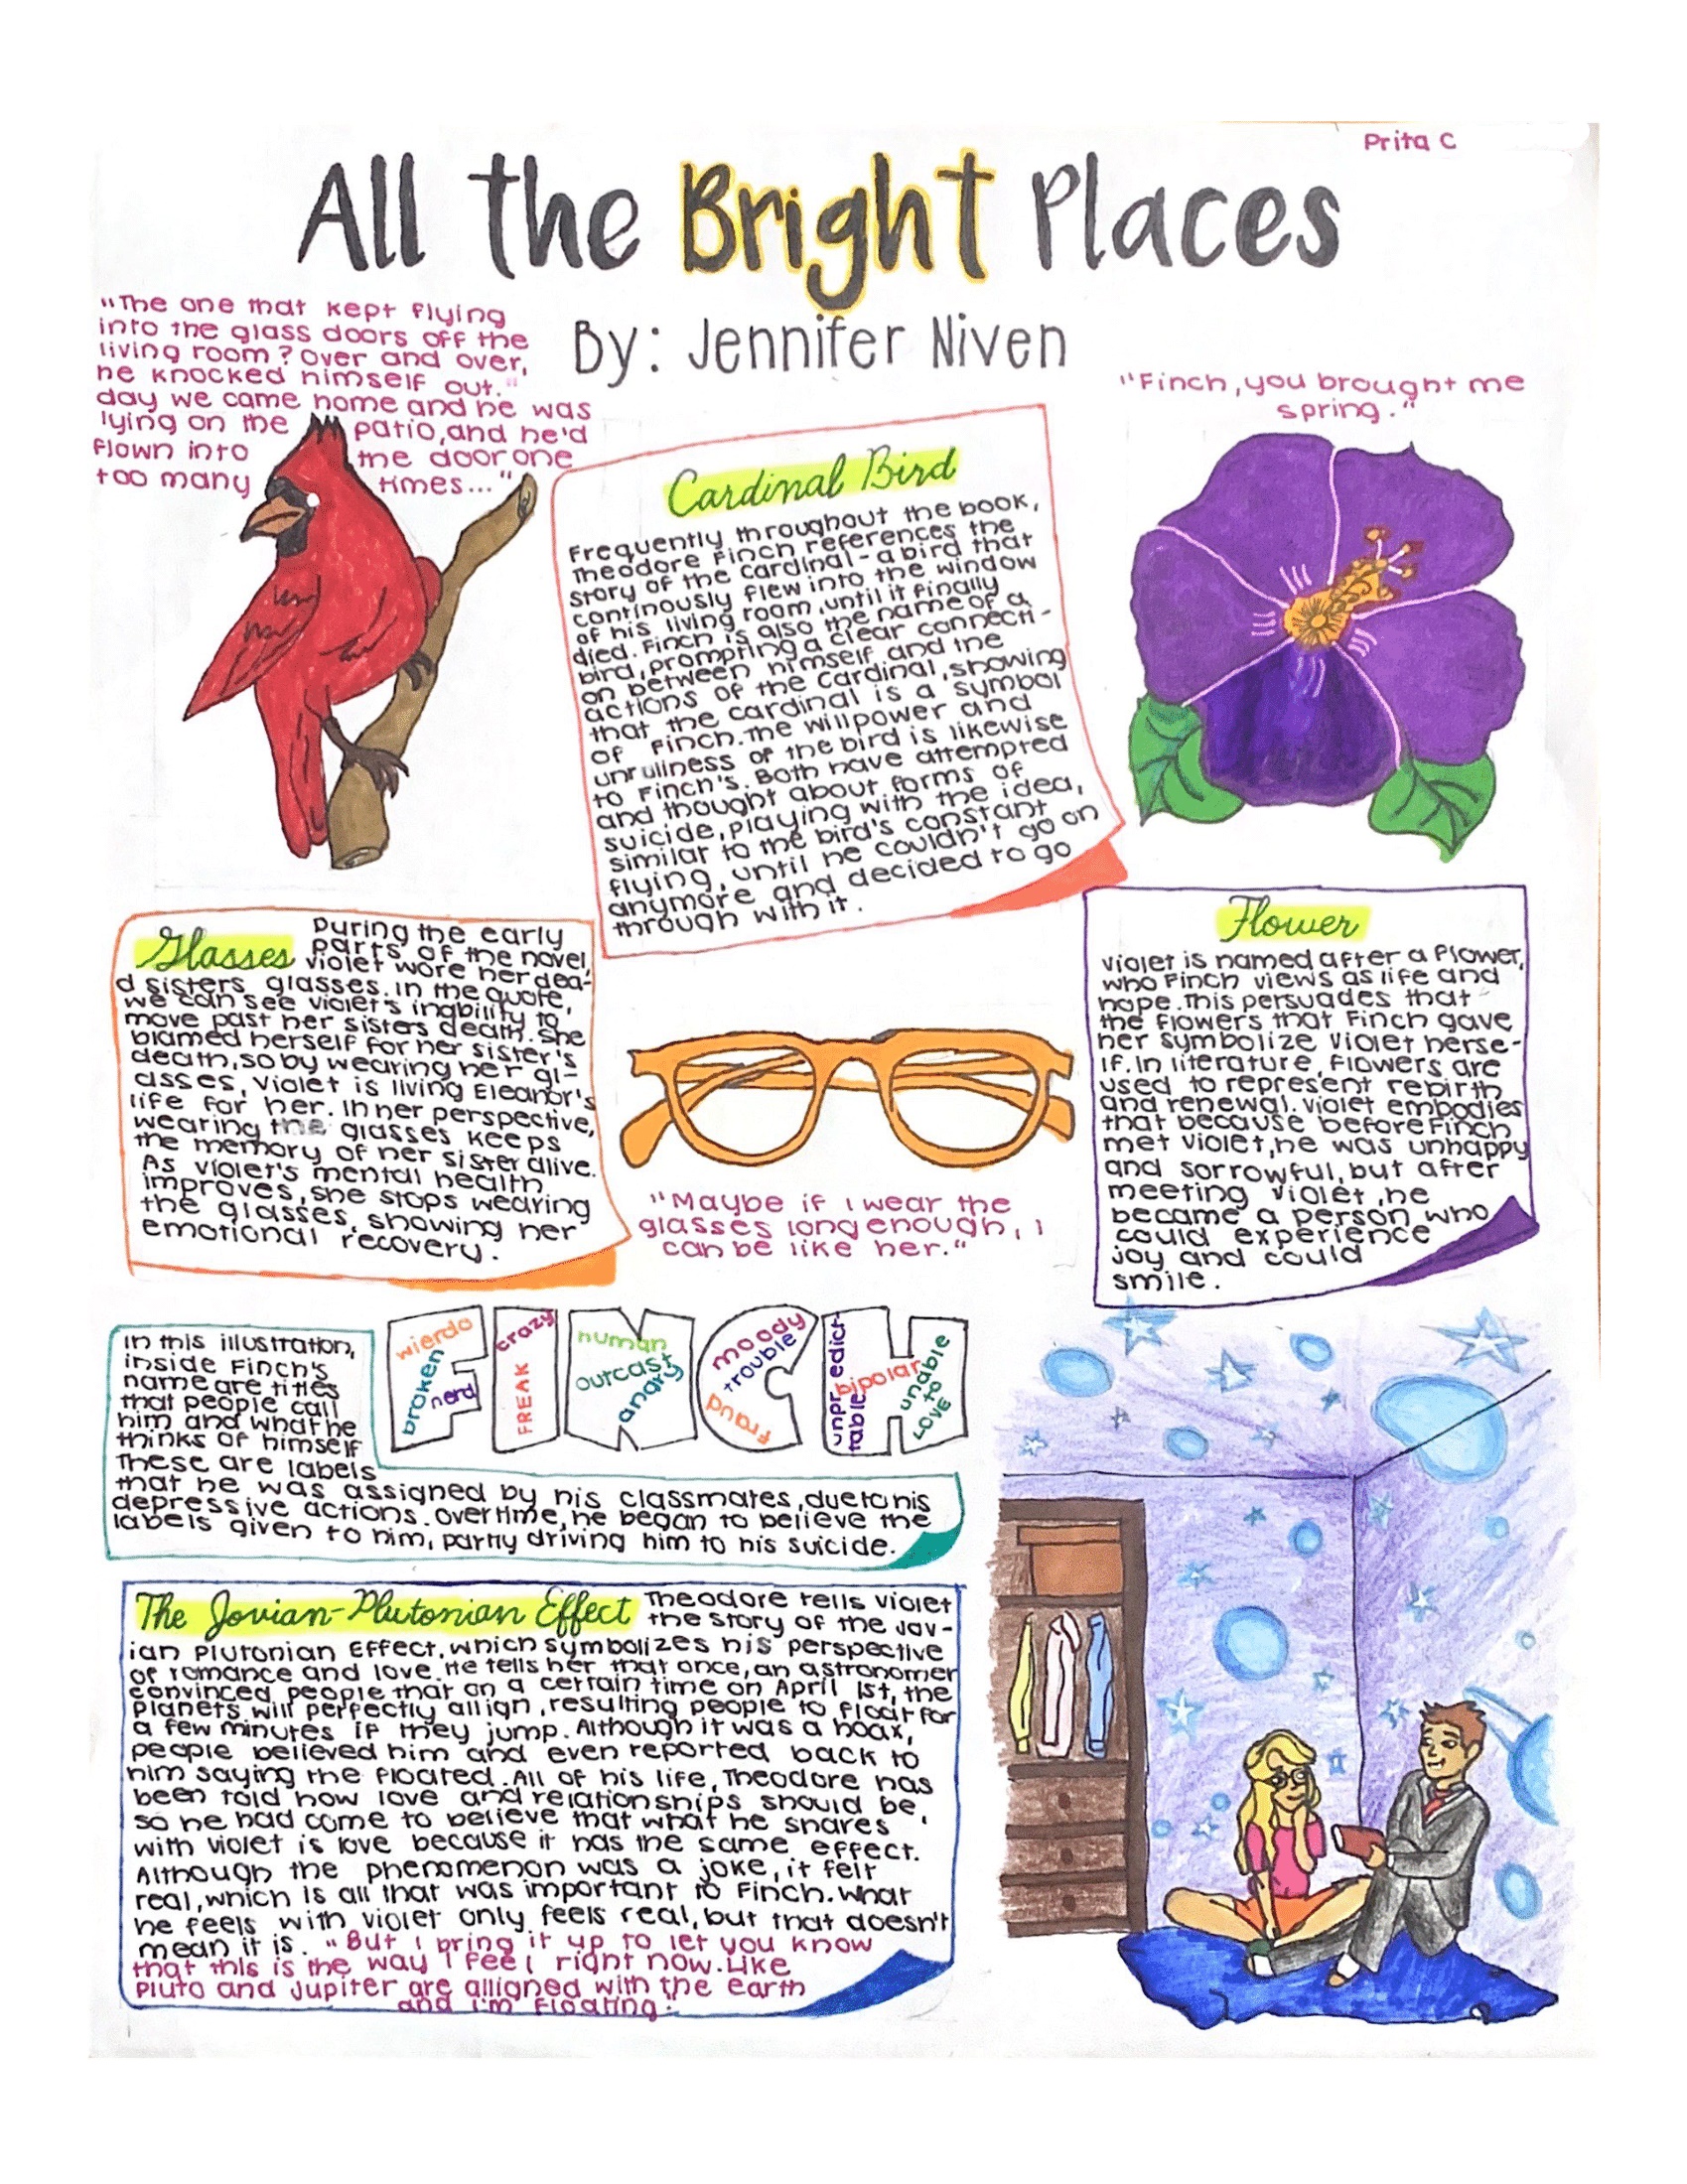 Prita C
All the Bright Places
By: Jennifer Niven
"The one that kept flying
into the glass doors off the
living room? Over and over,
he knocked himself out."
day we came home and he was
lying on the patio, and he'd
flown into the door one
too many times..."
"Finch, you brought me
spring."
Cardinal Bird
Frequently throughout the book,
Theodore Finch references the
story of the cardinal - a bird that
continously flew into the window
of his living room, until it finally
died. Finch is also the name of a
bird, prompting a clear connecti-
on between himself and the
actions of the cardinal, showing
that the cardinal is a symbol
of Finch. The willpower and
unruliness of the bird is likewise
to Finch's. Both have attempted
and thought about forms of
suicide, playing with the idea,
similar to the bird's constant
flying, until he couldn't go on
anymore and decided to go
through with it.
Glasses During the early
parts of the novel,
violet wore her dea-
d sisters glasses. In the quote,
we can see violet's inability to
move past her sisters death. She
blamed herself for her sister's
death, so by wearing her gl-
asses, violet is living Eleanor's
life for her. In her perspective,
wearing the glasses keeps
the memory of her sister alive.
As violet's mental health
improves, she stops wearing
the glasses, showing her
emotional recovery.
"Maybe if I wear the
glasses long enough, I
can be like her."
Flower
Violet is named after a flower,
who Finch views as life and
hope. This persuades that
the flowers that Finch gave
her symbolize violet herse-
lf. In literature, flowers are
used to represent rebirth
and renewal. Violet embodies
that because before Finch
met violet, he was unhappy
and sorrowful, but after
meeting violet, he
became a person who
could experience
joy and could
smile.
In this illustration,
inside Finch's
name are titles
that people call
him and what he
thinks of himself
These are labels
that he was assigned by his classmates, due to his
depressive actions. Overtime, he began to believe the
labels given to him, partly driving him to his suicide.
FINCH
wierdo
broken
nerd
crazy
FREAK
human
outcast
angry
moody
trouble
Fraud
unpredict-
table
bipolar
unable
to
Love
The Jovian-Plutonian Effect Theodore tells violet
the story of the Jov-
ian Plutonian Effect, which symbolizes his perspective
of romance and love. He tells her that once, an astronomer
convinced people that on a certain time on April 1st, the
planets will perfectly allign, resulting people to float for
a few minutes if they jump. Although it was a hoax,
people believed him and even reported back to
him saying the floated. All of his life, Theodore has
been told how love and relationships should be,
so he had come to believe that what he shares
with violet is love because it has the same effect.
Although the phenomenon was a joke, it felt
real, which is all that was important to Finch. What
he feels with violet only feels real, but that doesn't
mean it is. "But I bring it up to let you know
that this is the way I feel right now. Like
Pluto and Jupiter are alligned with the earth
and I'm floating."